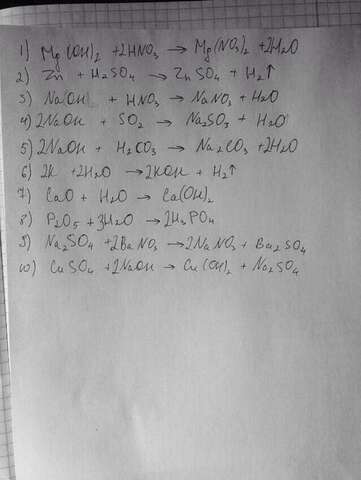 1) Mg(OH)2 + 2HNO3 → Mg(NO3)2 + 2H2O
2) Zn + H2SO4 → ZnSO4 + H2↑
3) NaOH + HNO3 → NaNO3 + H2O
4) 2NaOH + SO2 → Na2SO3 + H2O
5) 2NaOH + H2CO3 → Na2CO3 + 2H2O
6) 2K + 2H2O → 2KOH + H2↑
7) CaO + H2O → Ca(OH)2
8) P2O5 + 3H2O → 2H3PO4
9) Na2SO4 + 2BaNO3 → 2NaNO3 + Ba2SO4
10) CuSO4 + 2NaOH → Cu(OH)2 + Na2SO4